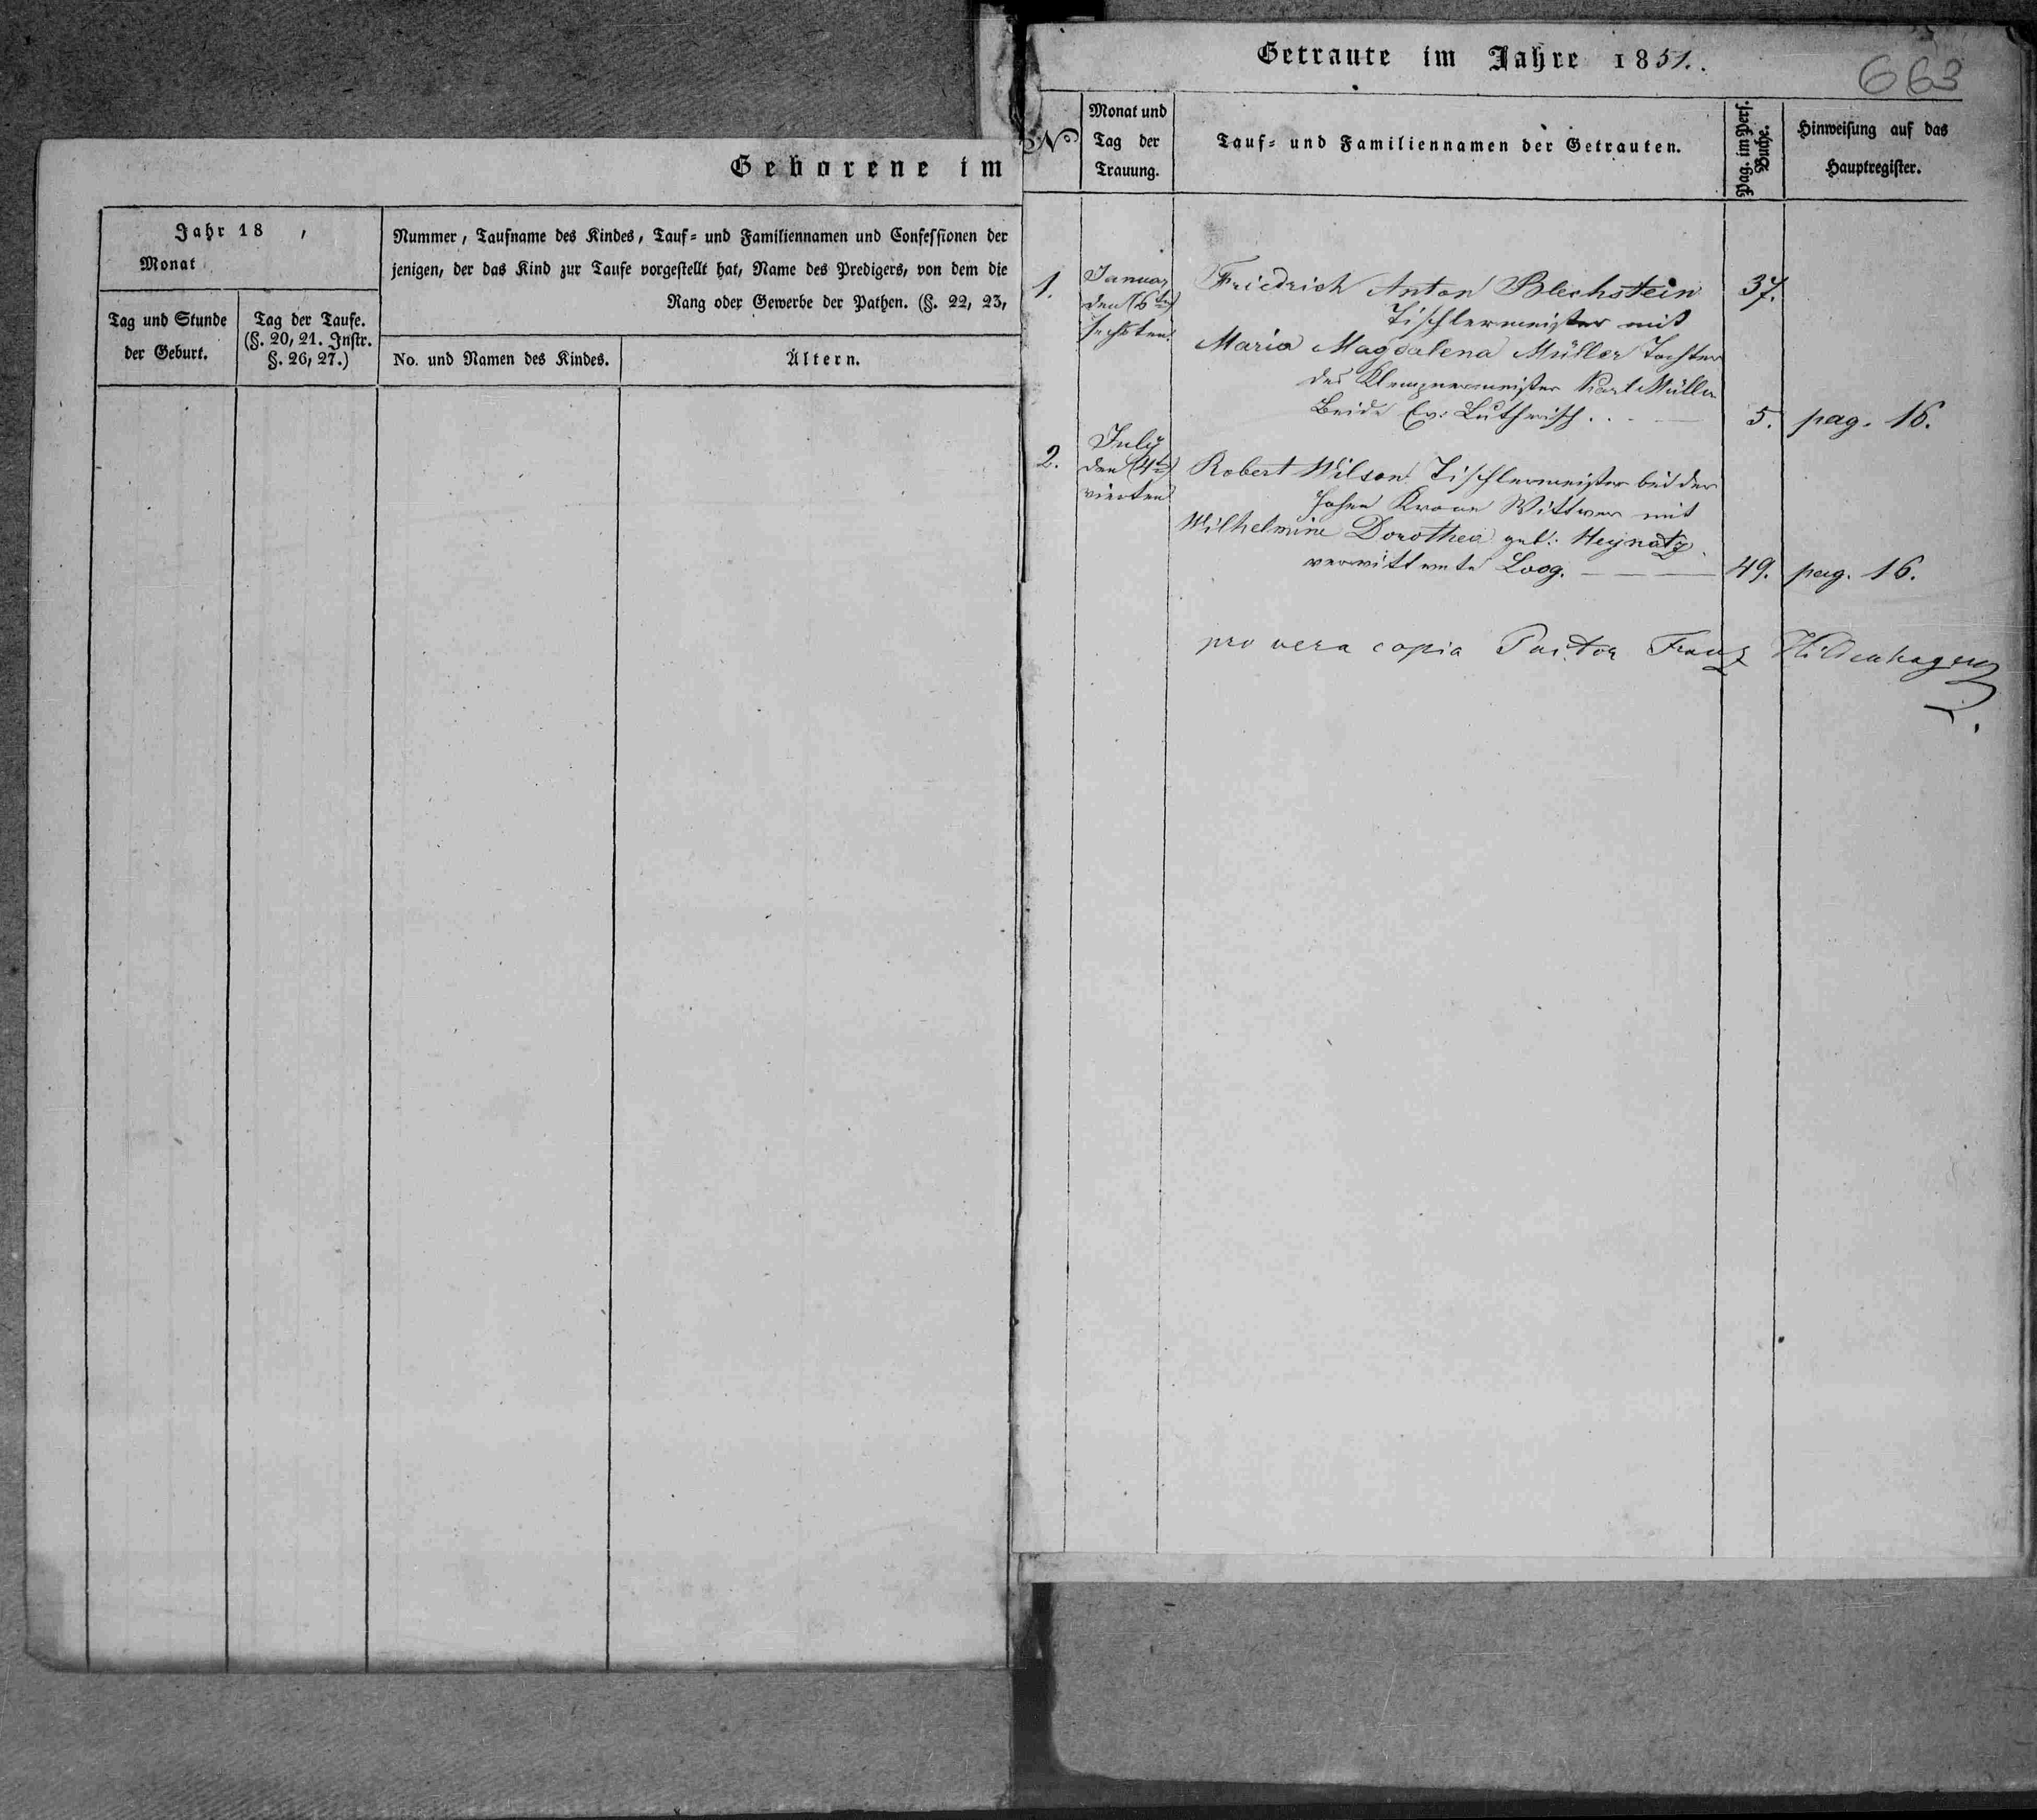 Geborene im
Jahr 18 ,
Monat
Nummer, Taufname des Kindes, Tauf- und Familiennamen und Confessionen der
jenigen, der das Kind zur Taufe vorgestellt hat, Name des Predigers, von dem die
Rang oder Gewerbe der Pathen. (§. 22, 23,
Tag und Stunde
der Geburt.
Tag der Taufe.
(§. 20, 21. Instr.
§. 26, 27.)
No. und Namen des Kindes.
Ältern.
Getraute im Jahre 1851.
663
No
Monat und
Tag der
Trauung.
Tauf- und Familiennamen der Getrauten.
Pag. im Pers.
Buche.
Hinweisung auf das
Hauptregister.
1.
Januar
den (6ten)
sechsten.
Friedrich Anton Blechstein
37.
Tischlermeister mit
Maria Magdalena Müller Tochter
des Klempnermeister Karl Müller
Beide Ev: Lutherisch.
5.
pag. 16.
2.
July
den (4ten)
vierten
Robert Wilson Tischlermeister bei der
hohen Krone Wittwer mit
Wilhelmine Dorothea geb: Heynatz
verwittwete Loog.
49.
pag. 16.
pro vera copia Pastor Franz Hildenhagen